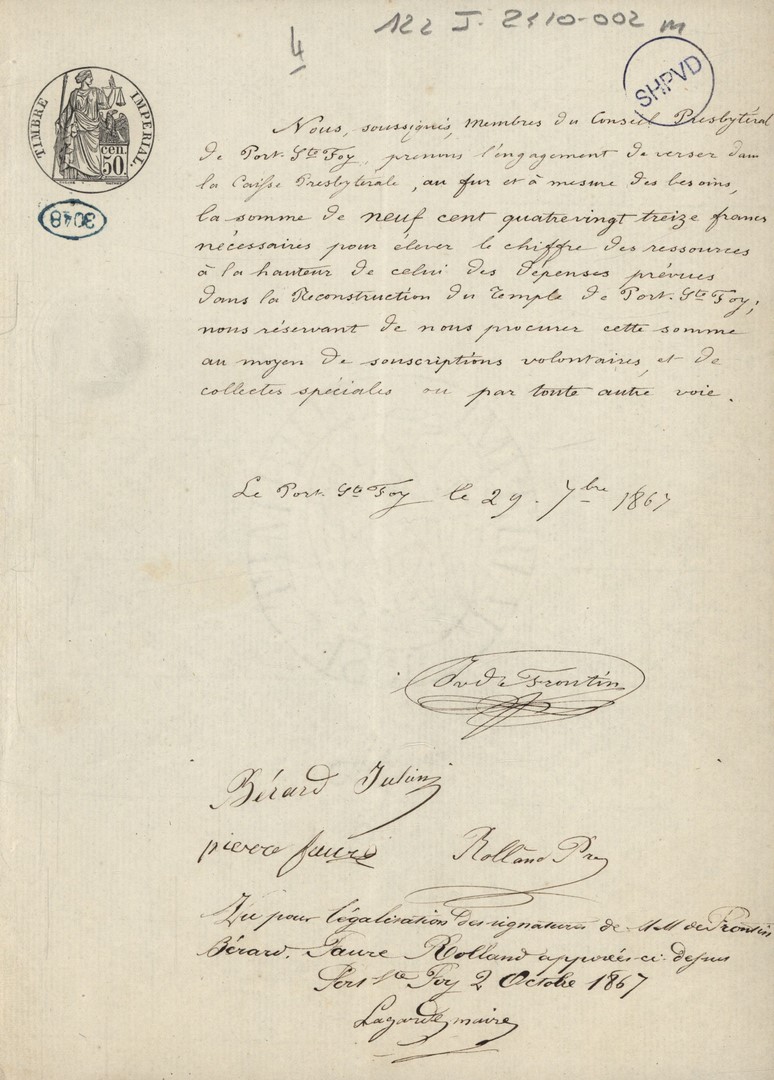 122 J. 2110-002 m
4
SHPVD
TIMBRE IMPERIAL
50 cen.
3048
Nous, soussignés, Membres du Conseil Presbytéral
de Port. Ste Foy, prenons l'engagement de verser dans
la Caisse Presbytérale, au fur et à mesure des besoins,
la somme de neuf cent quatrevingt treize francs
nécessaires pour élever le chiffre des ressources
à la hauteur de celui des dépenses prévues
dans la Reconstruction du Temple de Port. Ste Foy;
nous réservant de nous procurer cette somme
au moyen de souscriptions volontaires, et de
collectes spéciales ou par toute autre voie.
Le Port. Ste Foy le 29. 7bre 1867
de Frontin
Bérard Julien
pierre faure
Rolland
Vu pour légalisation des signatures de MM de Frontin
Bérard. Faure Rolland apposées ci-dessus
Port Ste Foy 2 Octobre 1867
Lagarde maire